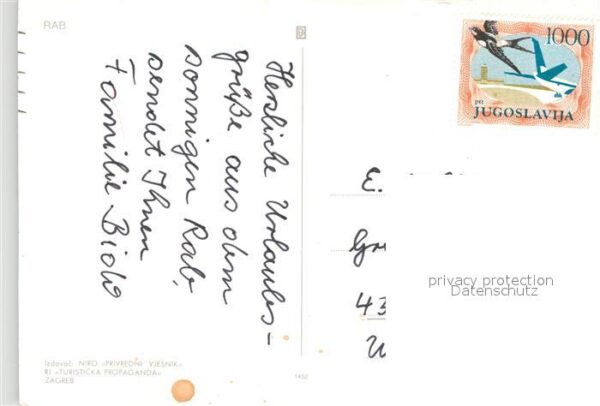 RAB
1000
JUGOSLAVIJA
Herzliche Urlaubs-
grüße aus dem
sonnigen Rab,
sendet Ihnen
Familie
E.
43
privacy protection
Datenschutz
Izdavač: NIRO »PRIVREDNI VJESNIK«
RJ »TURISTIČKA PROPAGANDA«
ZAGREB
1452